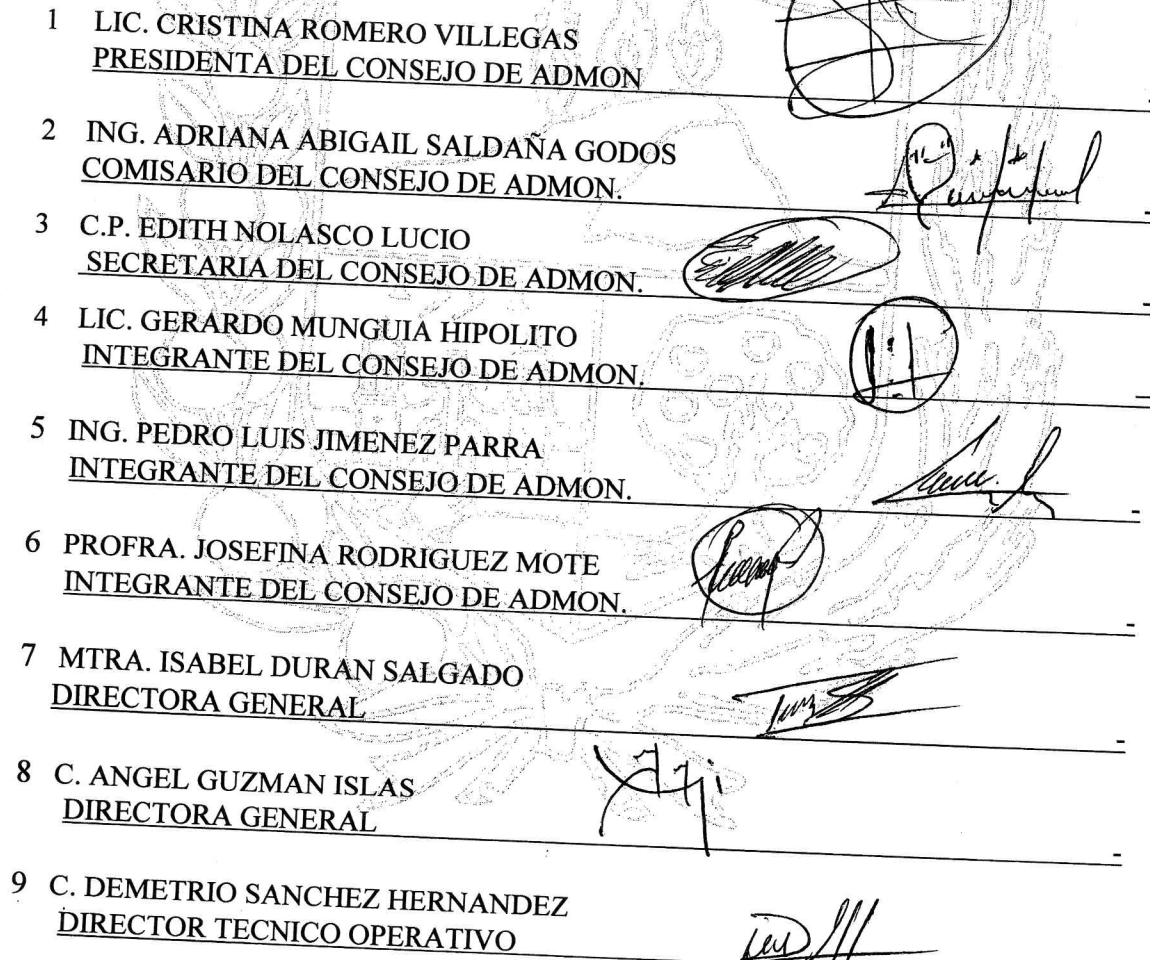 1 LIC. CRISTINA ROMERO VILLEGAS
PRESIDENTA DEL CONSEJO DE ADMON
2 ING. ADRIANA ABIGAIL SALDAÑA GODOS
COMISARIO DEL CONSEJO DE ADMON.
3 C.P. EDITH NOLASCO LUCIO
SECRETARIA DEL CONSEJO DE ADMON.
4 LIC. GERARDO MUNGUIA HIPOLITO
INTEGRANTE DEL CONSEJO DE ADMON.
5 ING. PEDRO LUIS JIMENEZ PARRA
INTEGRANTE DEL CONSEJO DE ADMON.
6 PROFRA. JOSEFINA RODRIGUEZ MOTE
INTEGRANTE DEL CONSEJO DE ADMON.
7 MTRA. ISABEL DURAN SALGADO
DIRECTORA GENERAL
8 C. ANGEL GUZMAN ISLAS
DIRECTORA GENERAL
9 C. DEMETRIO SANCHEZ HERNANDEZ
DIRECTOR TECNICO OPERATIVO